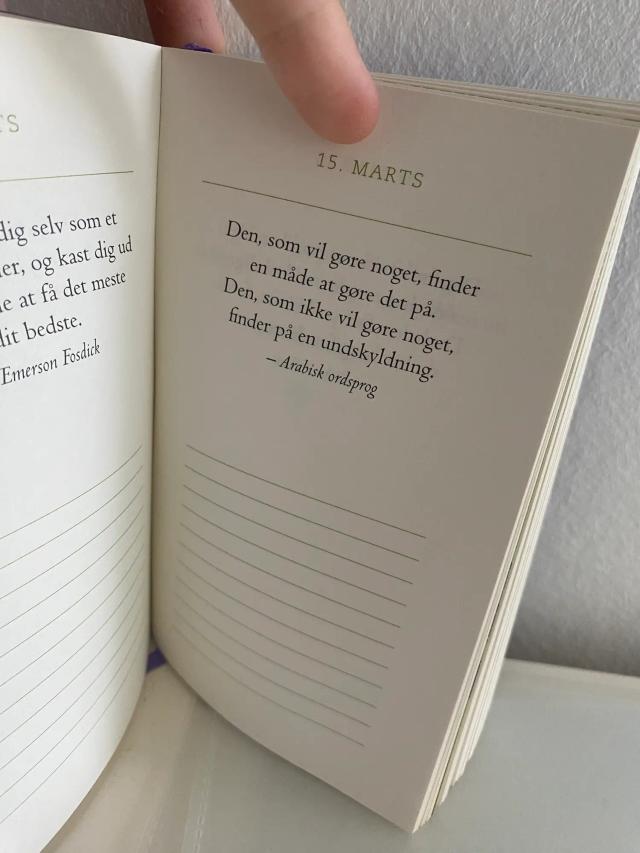 TS
dig selv som et
er, og kast dig ud
e at få det meste
dit bedste.
Emerson Fosdick
15. MARTS
Den, som vil gøre noget, finder
en måde at gøre det på.
Den, som ikke vil gøre noget,
finder på en undskyldning.
– Arabisk ordsprog